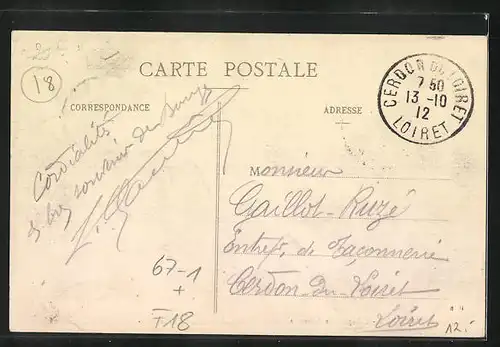 18
CARTE POSTALE
CORRESPONDANCE
ADRESSE
CERDON DU LOIRET
7 50
13 -10
12
LOIRET
Cordialités
souvenir de
Monsieur
Gaillot-Ruzé
Entrepr. de Maçonnerie
Cerdon-du-Loiret
Loiret
67-1
+
T18
12.-